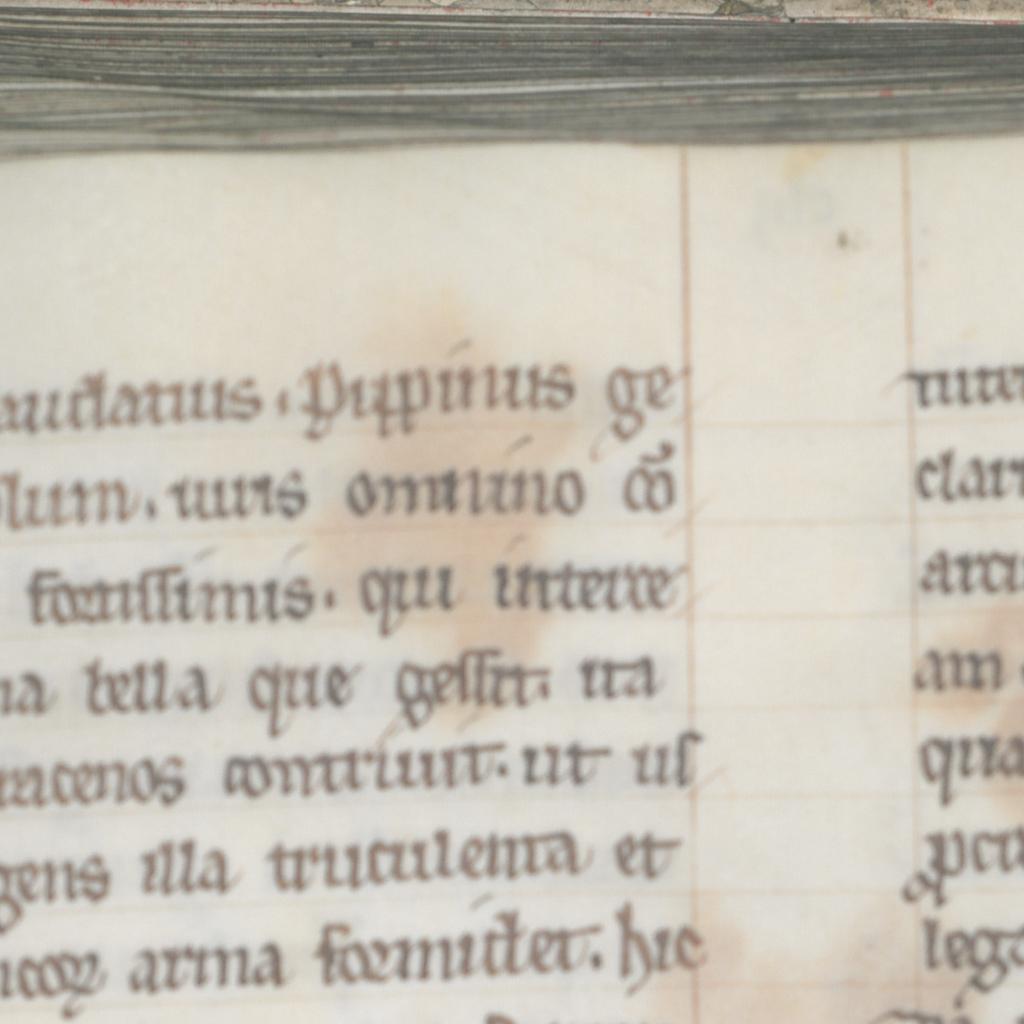 audatus. Pippinus ge
lum. uiris omnino cō
fortissimis. qui interre
na bella que gessit. ita
racenos contriuit. ut us
gens illa truculenta et
arma formidet. hic
clari
arcu
am
quia
lega